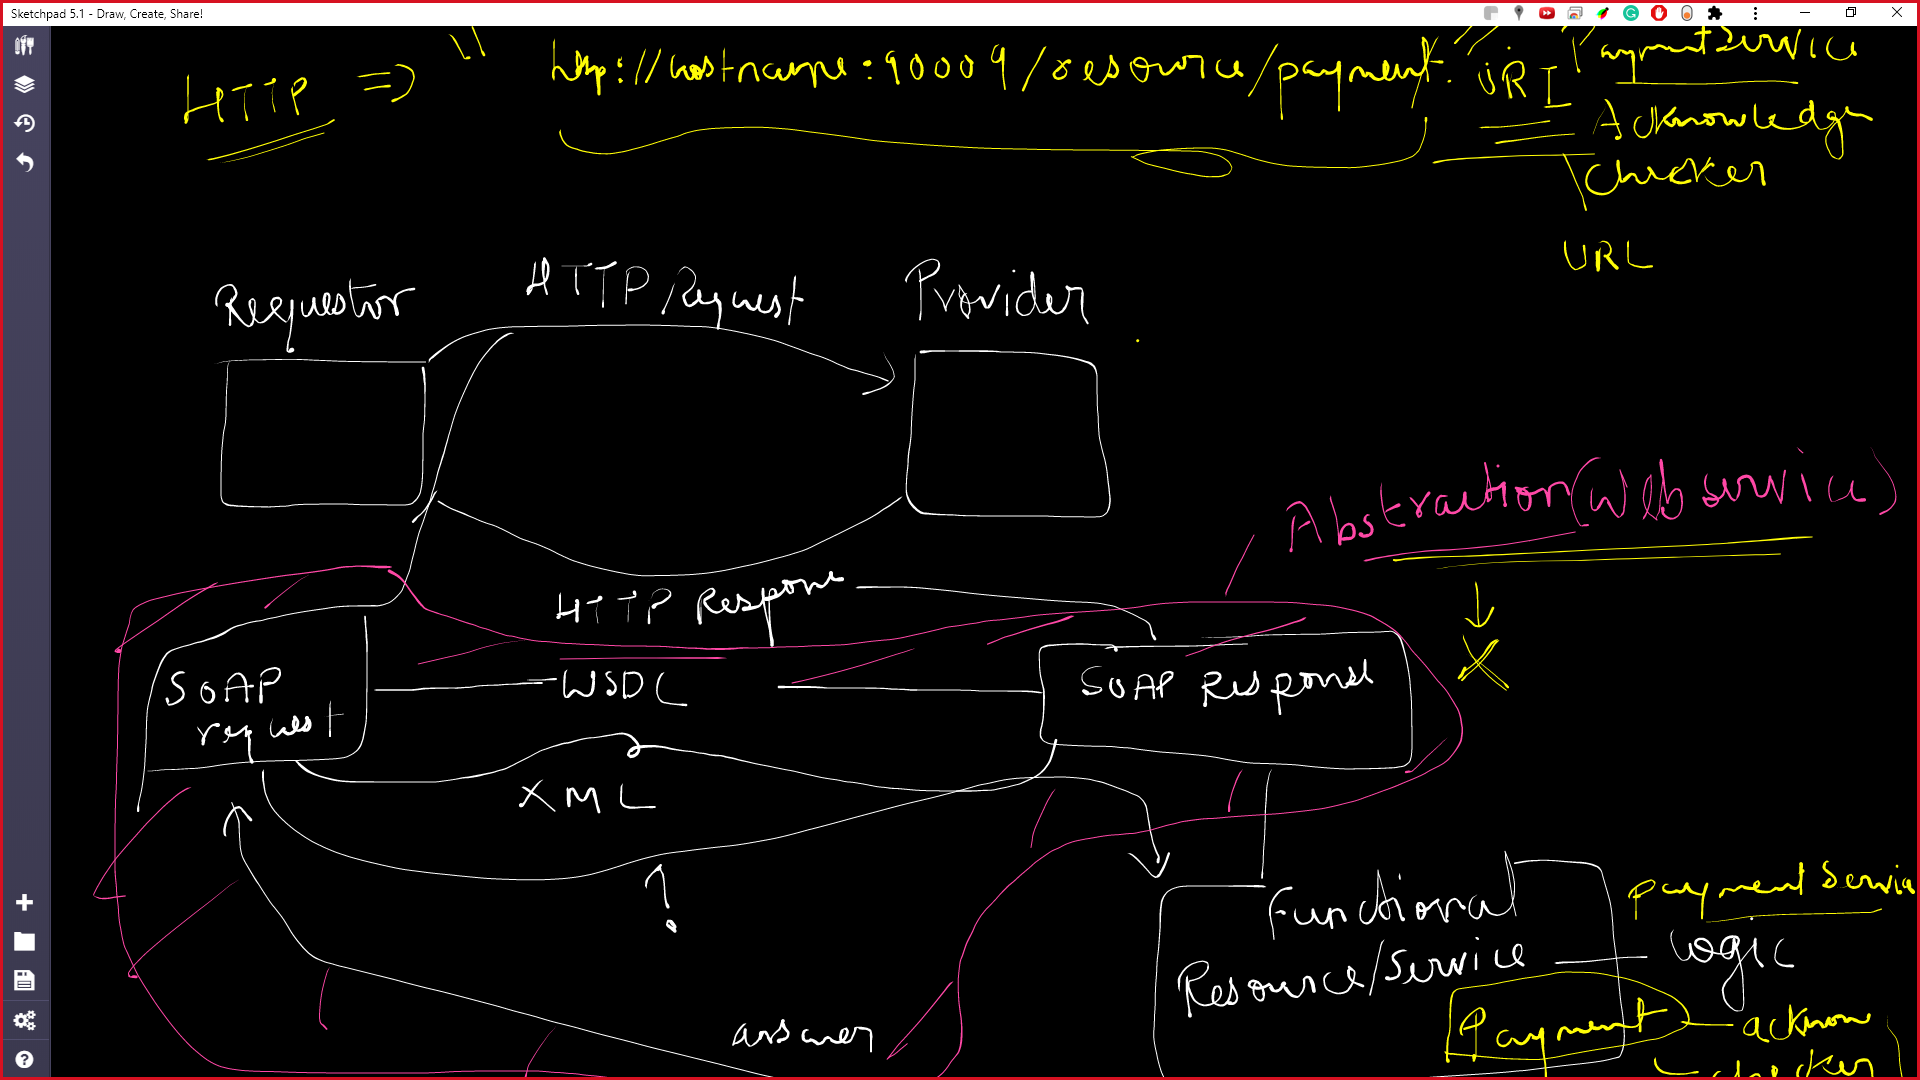 Sketchpad 5.1 - Draw, Create, Share!
HTTP => " http://hostname:90009/resource/payment. " URI
PaymentService
Acknowledge
Checker
URL
Requestor
HTTP Request
Provider
Abstraction (Web service)
HTTP Response
SOAP
request
WSDL
SOAP Response
XML
Functional
Resource/Service
Payment Servic
Logic
Payment
acknow
checker
answer